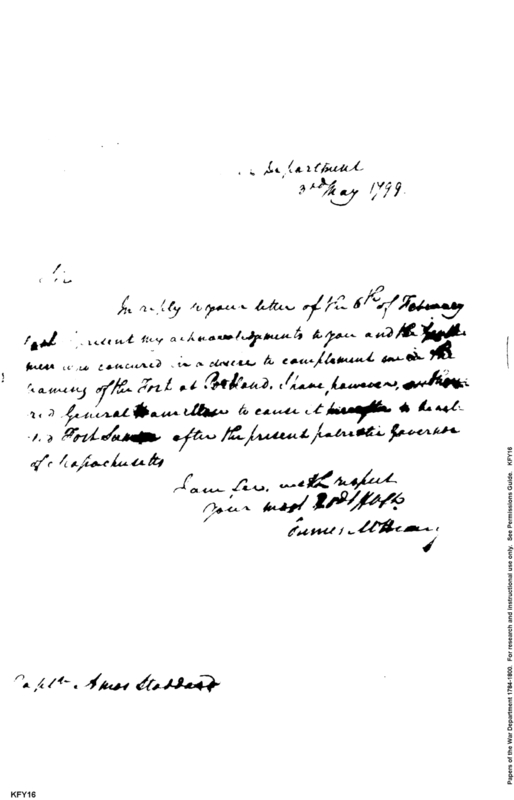 Department
3rd May 1799.
Sir
In reply to your letter of the 6th of February
last present my acknowledgements to you and the Gentle
men who concured in a desire to complement me in the
naming of the Fort at Portland. I have, however, autho
red General Hamilton to cause it hereafter to be
Fort Sumner after the present patriotic Governor
of Massachusetts
I am, Sir, with respect
Your most Obdt Hble
James McHenry
Captn. Amos Stoddard
KFY16
Papers of the War Department 1784-1800. For research and instructional use only. See Permissions Guide. KFY16